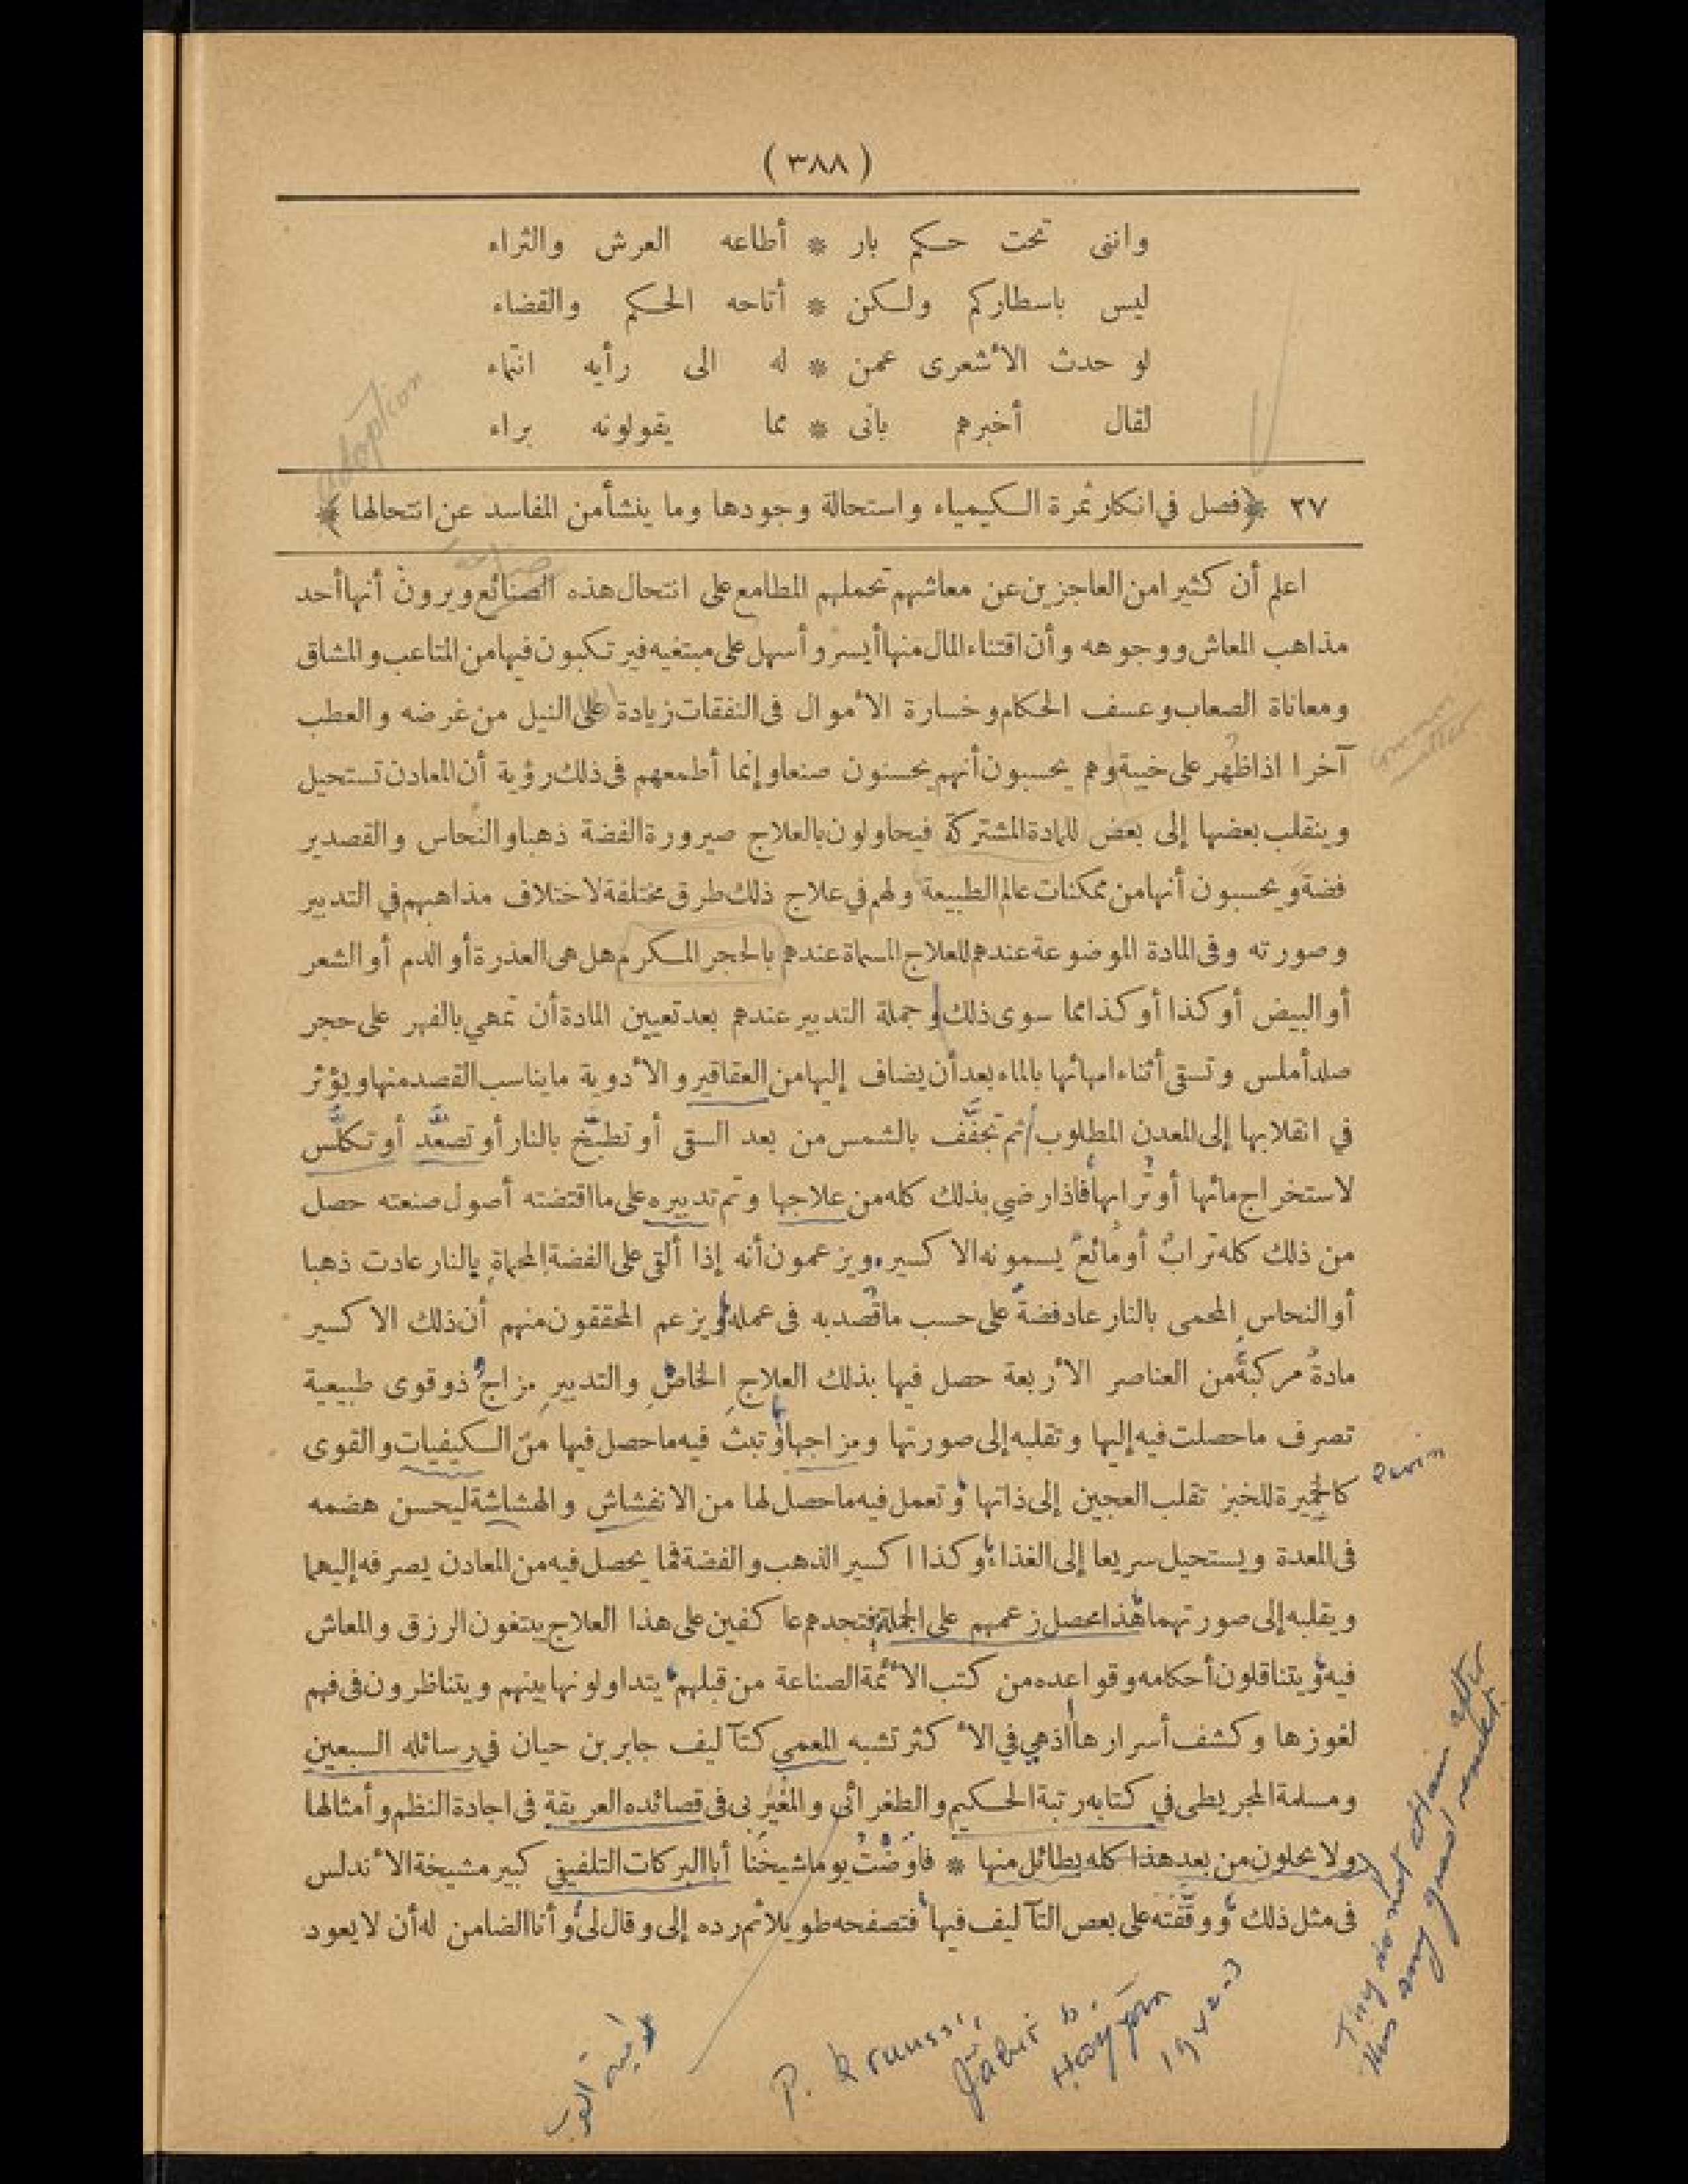 ( ٣٨٨ )
واننى تحت حكم بار * أطاعه العرش والثراء
ليس باسطاركم ولكن * أتاحه الحكم والقضاء
لو حدث الأشعرى عمن * له الى رأيه انتماء
لقال أخبرهم بأنى * مما يقولونه براء
adoption
٢٧ ﴿فصل في انكار ثمرة الكيمياء واستحالة وجودها وما ينشأ من المفاسد عن انتحالها﴾
اعلم أن كثيرا من العاجزين عن معاشهم تحملهم المطامع على انتحال هذه الصنائع ويرون أنها أحد
مذاهب المعاش ووجوهه وأن اقتناء المال منها أيسر وأسهل على مبتغيه فيرتكبون فيها من المتاعب والمشاق
ومعاناة الصعاب وعسف الحكام وخسارة الأموال فى النفقات زيادة على النيل من غرضه والعطب
آخرا اذا ظهر على خيبة وهم يحسبون أنهم يحسنون صنعا وإنما أطمعهم فى ذلك رؤية أن المعادن تستحيل
common matter
وينقلب بعضها إلى بعض للمادة المشتركة فيحاولون بالعلاج صيرورة الفضة ذهبا والنحاس والقصدير
فضة ويحسبون أنها من ممكنات عالم الطبيعة ولهم في علاج ذلك طرق مختلفة لاختلاف مذاهبهم في التدبير
وصورته وفى المادة الموضوعة عندهم للعلاج المسماة عندهم بالحجر المكرم هل هى العذرة أو الدم أو الشعر
أو البيض أو كذا أو كذا مما سوى ذلك وجملة التدبير عندهم بعد تعيين المادة أن تمهي بالفهر على حجر
صلد أملس وتسقى أثناء امهائها بالماء بعد أن يضاف إليها من العقاقير والأدوية ما يناسب القصد منها ويؤثر
في انقلابها إلى المعدن المطلوب ثم تجفَّف بالشمس من بعد السقى أو تطبَّخ بالنار أو تصعَّد أو تكلَّس
لاستخراج مائها أو ترابها فاذا رضي بذلك كله من علاجها وتم تدبيره على ما اقتضته أصول صنعته حصل
من ذلك كله ترابٌ أو مائعٌ يسمونه الاكسير ويزعمون أنه إذا ألقى على الفضة المحماة بالنار عادت ذهبا
أو النحاس المحمى بالنار عاد فضة على حسب ما قصد به فى عمله ويزعم المحققون منهم أن ذلك الاكسير
مادة مركبة من العناصر الأربعة حصل فيها بذلك العلاج الخاص والتدبير مزاج ذو قوى طبيعية
تصرف ما حصلت فيه إليها وتقلبه إلى صورتها ومزاجها وتبث فيه ما حصل فيها من الكيفيات والقوى
كالخميرة للخبز تقلب العجين إلى ذاتها وتعمل فيه ما حصل لها من الانفشاش والهشاشة ليحسن هضمه
فى المعدة ويستحيل سريعا إلى الغذاء وكذا اكسير الذهب والفضة فيما يحصل فيه من المعادن يصرفه إليهما
ويقلبه إلى صورتهما هذا محصل زعمهم على الجملة فتجدهم عاكفين على هذا العلاج يبتغون الرزق والمعاش
فيه ويتناقلون أحكامه وقواعده من كتب الأئمة الصناعة من قبلهم يتداولونها بينهم ويتناظرون فى فهم
لغوزها وكشف أسرارها اذ هي في الأكثر تشبه المعمي كتآليف جابر بن حيان في رسائله السبعين
ومسلمة المجريطى في كتابه رتبة الحكيم والطغرائى والمغيربى فى قصائده العريقة فى اجادة النظم وأمثالها
ولا يحلون من بعد هذا كله بطائل منها * فاوضْتُ يوما شيخنا أبا البركات التلفيفى كبير مشيخة الأندلس
فى مثل ذلك ووقَّفته على بعض التآليف فيها فتصفحه طويلا ثم رده إلى وقال لى وأنا الضامن له أن لا يعود
They do not attain after
this any good result
P. Krauss,
Jabir b.
Hayyan
1942-3
لامية العرب